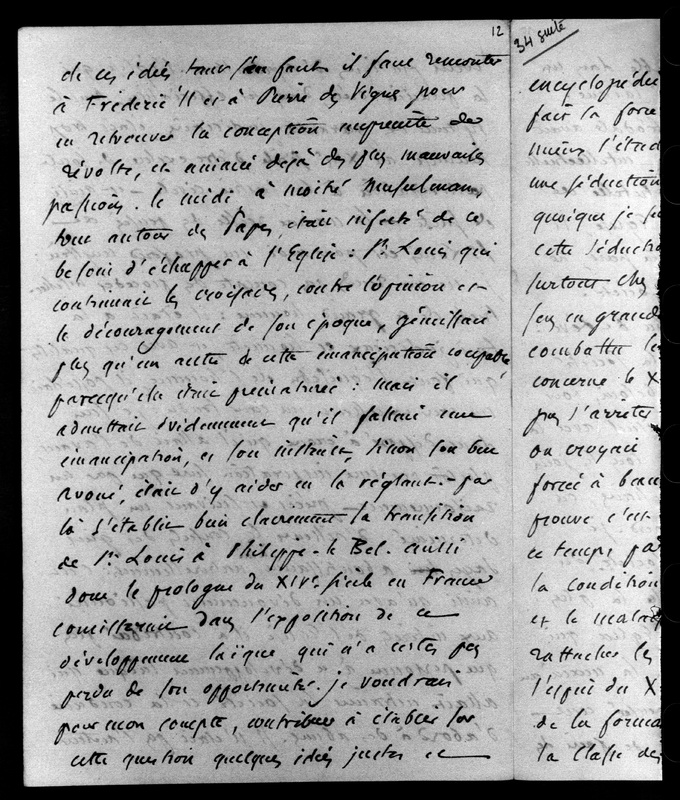 12
de ces idées tout en faut il faut remonter
à Frédéric II et à Pierre des Vignes pour
en retrouver la conception empreinte de
révolte, et animée déjà des plus mauvaises
passions. le midi à moitié musulman,
tout autour des Papes, était infecté de ce
besoin d'échapper à l'Eglise : St. Louis qui
continuait les croisades, contre l'opinion et
le découragement de son époque, gémissait
plus qu'un autre de cette émancipation coupable
parcequ'elle était prématurée : mais il
admettait évidemment qu'il fallait une
émancipation, et son instinct, sinon son but
avoué, était d'y aider en la réglant. - par
là s'établit bien clairement la transition
de St. Louis à Philippe-le-Bel. aussi
donc le prologue du XIVe. siècle en France
consisterait dans l'exposition de ce
développement laïque qui n'a certes pas
perdu de son opportunité. je voudrais
pour mon compte, contribuer à établir sur
cette question quelques idées justes et
34 suite
encyclopédi
fait la force
mieux l'étud
une séduction
quoique je su
cette séductio
surtout chez
en grand
combattu les
concerne le X
pas s'arrêter
on croyait
forcé à beau
prouve c'est
ce temps pa
la condition
et le malad
rattacher les
l'esprit du X
de la forma
la classe des